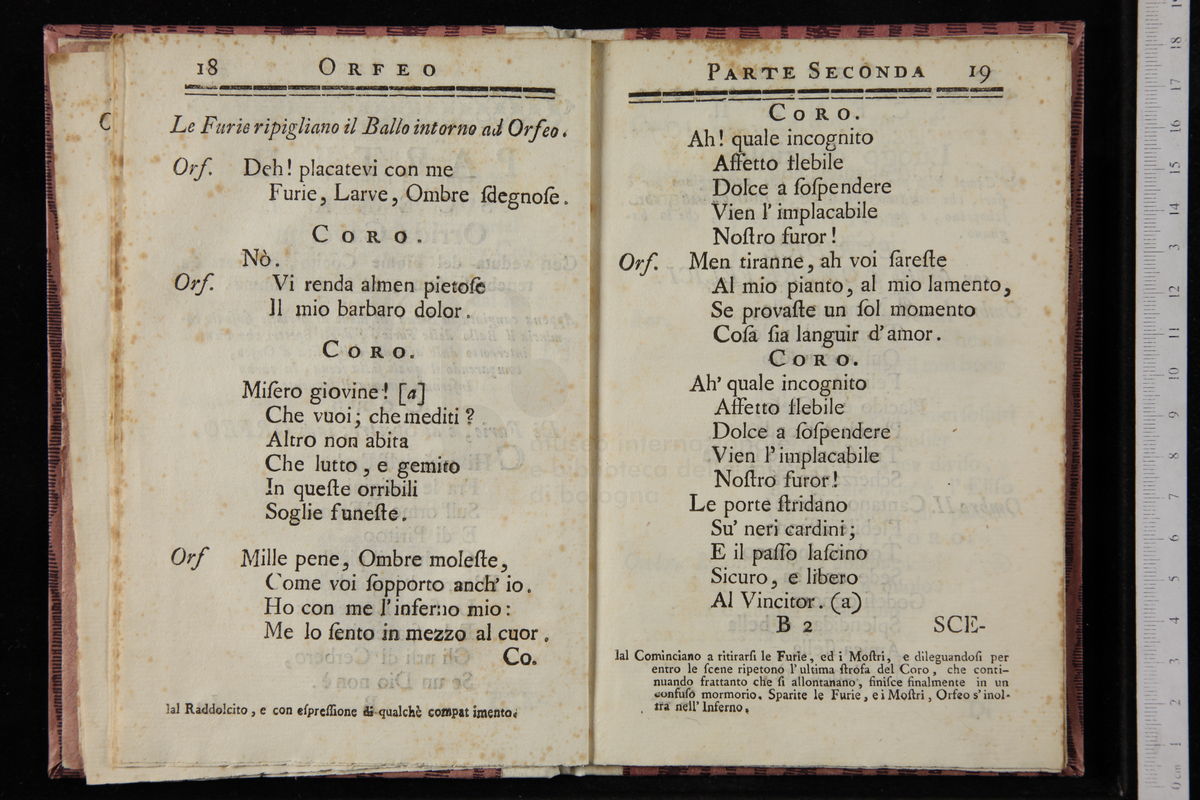 18 ORFEO
Le Furie ripigliano il Ballo intorno ad Orfeo.
Orf. Deh! placatevi con me
Furie, Larve, Ombre ſdegnoſe.
CORO.
Nò.
Orf. Vi renda almen pietoſe
Il mio barbaro dolor.
CORO.
Miſero giovine! [a]
Che vuoi; che mediti?
Altro non abita
Che lutto, e gemito
In queſte orribili
Soglie funeſte.
Orf Mille pene, Ombre moleſte,
Come voi ſopporto anch' io.
Ho con me l'inferno mio:
Me lo ſento in mezzo al cuor.
Co.
lal Raddolcito, e con eſpreſſione di qualchè compat imento.
PARTE SECONDA 19
CORO.
Ah! quale incognito
Affetto flebile
Dolce a ſoſpendere
Vien l' implacabile
Noſtro furor!
Orf. Men tiranne, ah voi ſareſte
Al mio pianto, al mio lamento,
Se provaſte un ſol momento
Coſa ſia languir d'amor.
CORO.
Ah' quale incognito
Affetto flebile
Dolce a ſoſpendere
Vien l'implacabile
Noſtro furor!
Le porte ſtridano
Su' neri cardini;
E il paſſo laſcino
Sicuro, e libero
Al Vincitor. (a)
B 2 SCE-
lal Cominciano a ritirarſi le Furie, ed i Moſtri, e dileguandoſi per
entro le ſcene ripetono l'ultima ſtrofa del Coro, che conti-
nuando frattanto che ſi allontanano, finiſce finalmente in un
confuſo mormorio. Sparite le Furie, e i Moſtri, Orfeo s'inol-
tra nell' Inferno.
museo internazionale
e biblioteca della musica
di bologna